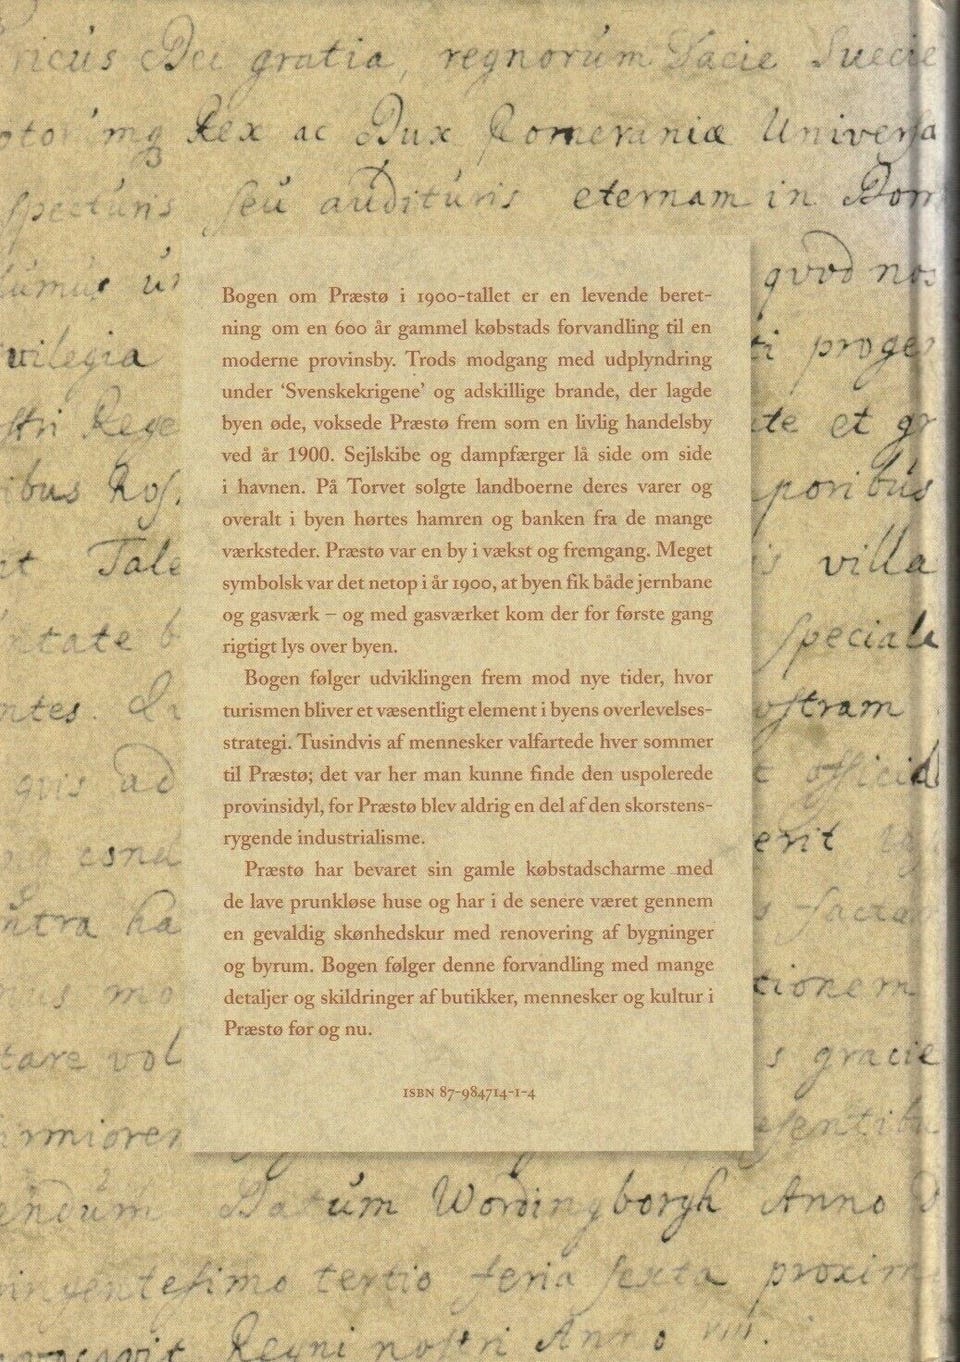 ricus Dei gratia, regnorum Dacie Suecie
Rex ac Dux Pomeraniæ Universa
specturis seu audituris eternam in Dom
quod nos
vilegia
proge
stri Rege
te et gr
ibus Ros.
poribus
Tale
villa
ntate
speciale
ntes.
ostram
quis ad
officia
esne
erit
ntra ha
mo
tionem
tare vol
gracie
irmiorem
esentibu
endum Datum Wordingborgh Anno
ingentesimo tertio feria sexta proxim
Regni nostri Anno VIII.
Bogen om Præstø i 1900-tallet er en levende beret-
ning om en 600 år gammel købstads forvandling til en
moderne provinsby. Trods modgang med udplyndring
under ‘Svenskekrigene’ og adskillige brande, der lagde
byen øde, voksede Præstø frem som en livlig handelsby
ved år 1900. Sejlskibe og dampfærger lå side om side
i havnen. På Torvet solgte landboerne deres varer og
overalt i byen hørtes hamren og banken fra de mange
værksteder. Præstø var en by i vækst og fremgang. Meget
symbolsk var det netop i år 1900, at byen fik både jernbane
og gasværk – og med gasværket kom der for første gang
rigtigt lys over byen.
Bogen følger udviklingen frem mod nye tider, hvor
turismen bliver et væsentligt element i byens overlevelses-
strategi. Tusindvis af mennesker valfartede hver sommer
til Præstø; det var her man kunne finde den uspolerede
provinsidyl, for Præstø blev aldrig en del af den skorstens-
rygende industrialisme.
Præstø har bevaret sin gamle købstadscharme med
de lave prunkløse huse og har i de senere været gennem
en gevaldig skønhedskur med renovering af bygninger
og byrum. Bogen følger denne forvandling med mange
detaljer og skildringer af butikker, mennesker og kultur i
Præstø før og nu.
ISBN 87-984714-1-4